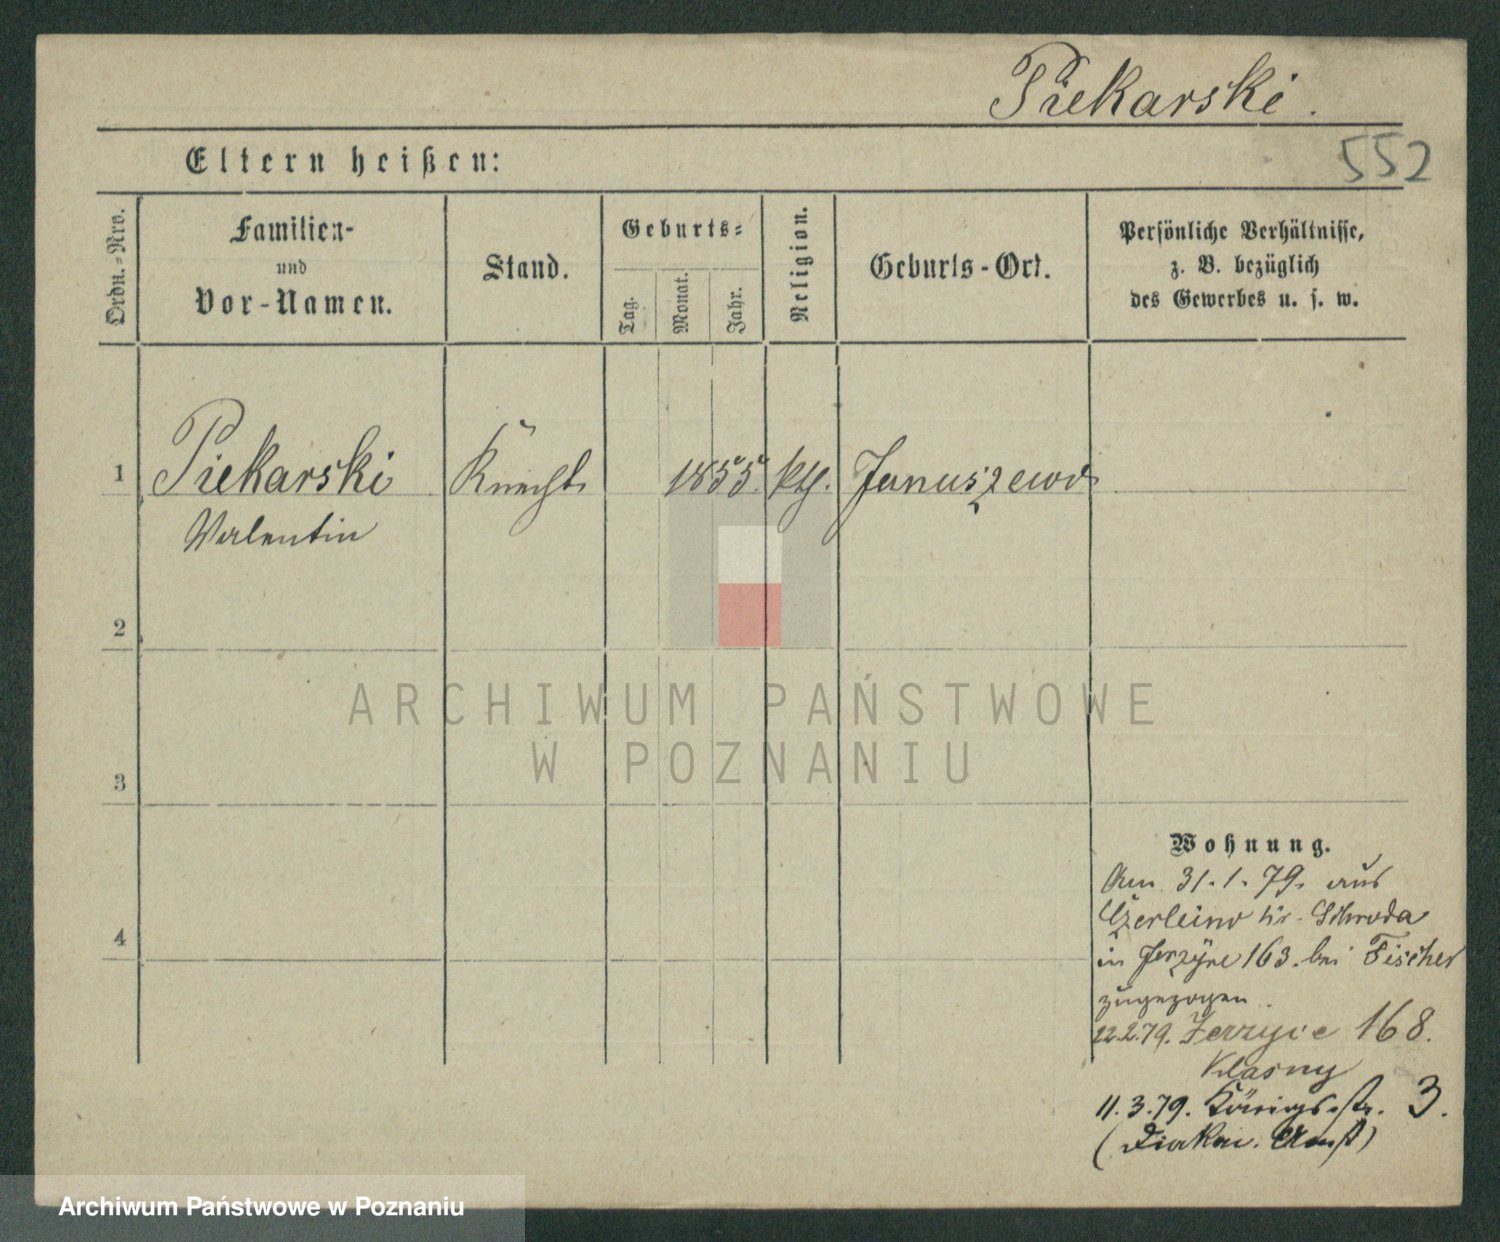 Piekarski.
552
Eltern heißen:
Ordn.=Nro.
Familien-
und
Vor-Namen.
Stand.
Geburts=
Tag.
Monat.
Jahr.
Religion.
Geburts-Ort.
Persönliche Verhältnisse,
z. B. bezüglich
des Gewerbes u. s. w.
1 Piekarski Knecht 1855. kth. Januszewo
Valentin
2
3
4
Wohnung.
Am 31.1.79. aus
Czerleino Kr. Schroda
in Jerzyce 163. bei Fischer
zugezogen.
22.2.79. Jerzyce 168.
Klasny
11.3.79. Königs-str. 3.
(Diakon. Anst)
ARCHIWUM PAŃSTWOWE
W POZNANIU
Archiwum Państwowe w Poznaniu